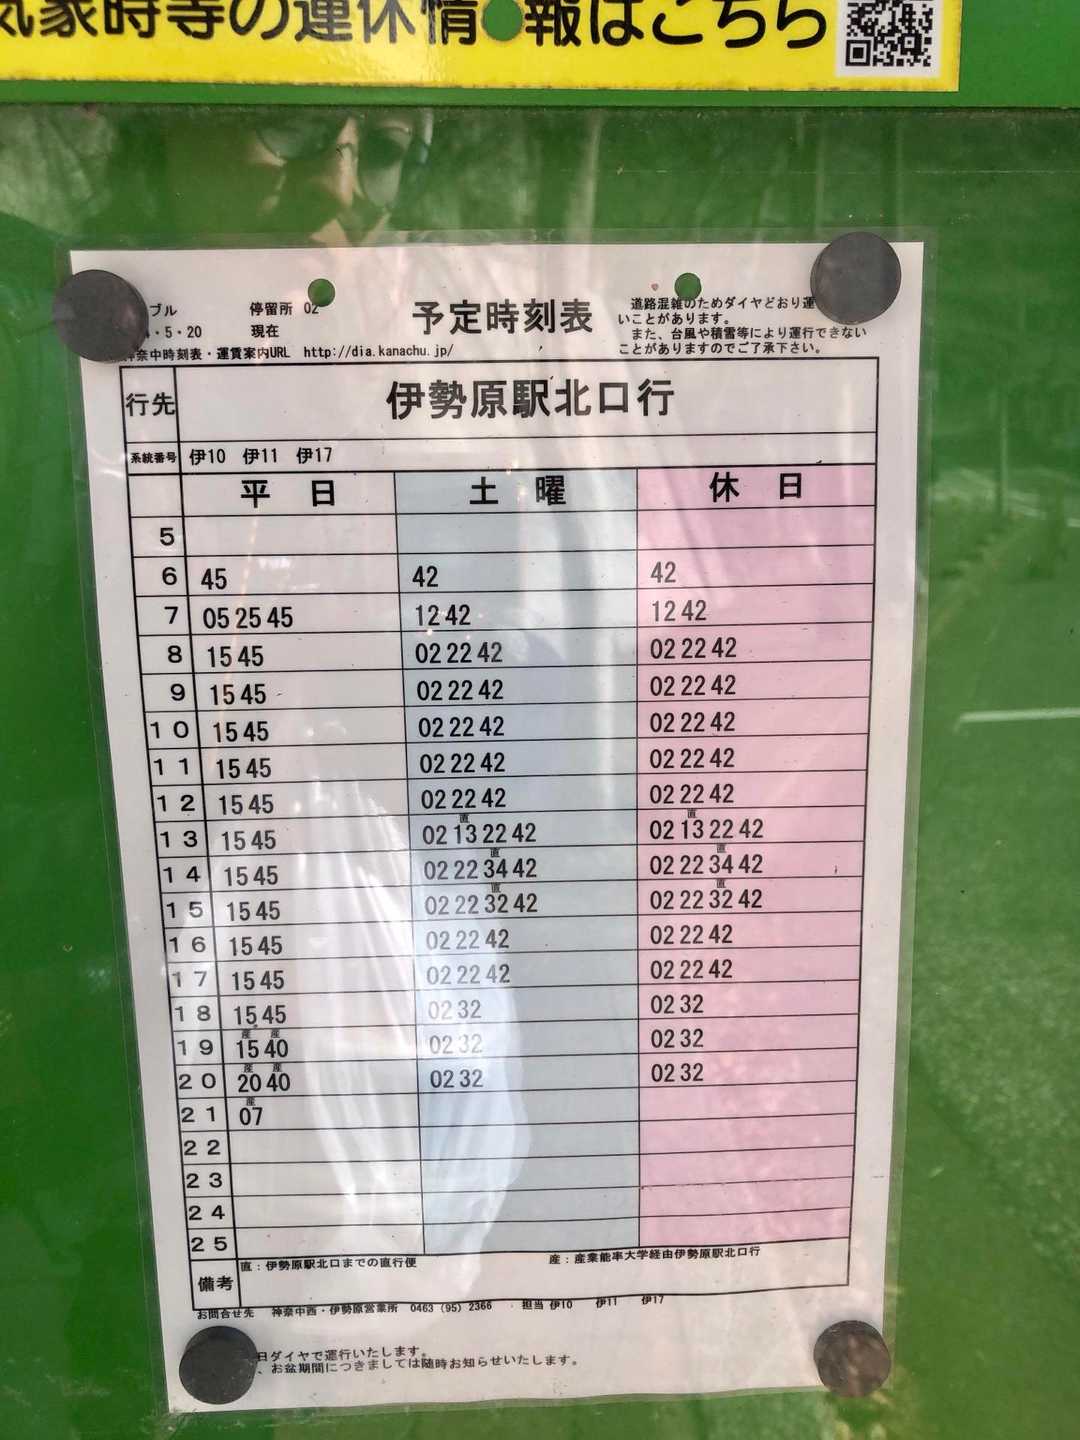 気象時等の運休情報はこちら
ブル 停留所 02
4・5・20 現在
予定時刻表
道路混雑のためダイヤどおり運
いことがあります。
また、台風や積雪等により運行できない
ことがありますのでご了承下さい。
神奈中時刻表・運賃案内URL http://dia.kanachu.jp/
行先 伊勢原駅北口行
系統番号 伊10 伊11 伊17
平日 土曜 休日
5
6 45 42 42
7 05 25 45 12 42 12 42
8 15 45 02 22 42 02 22 42
9 15 45 02 22 42 02 22 42
10 15 45 02 22 42 02 22 42
11 15 45 02 22 42 02 22 42
12 15 45 02 22 42 02 22 42
直 直
13 15 45 02 13 22 42 02 13 22 42
直 直
14 15 45 02 22 34 42 02 22 34 42
直 直
15 15 45 02 22 32 42 02 22 32 42
16 15 45 02 22 42 02 22 42
17 15 45 02 22 42 02 22 42
18 15 45 02 32 02 32
産 産
19 15 40 02 32 02 32
産 産
20 20 40 02 32 02 32
産
21 07
22
23
24
25
備考 直：伊勢原駅北口までの直行便 産：産業能率大学経由伊勢原駅北口行
お問合せ先 神奈中西・伊勢原営業所 0463（95）2366 担当 伊10 伊11 伊17
日ダイヤで運行いたします。
、お盆期間につきましては随時お知らせいたします。